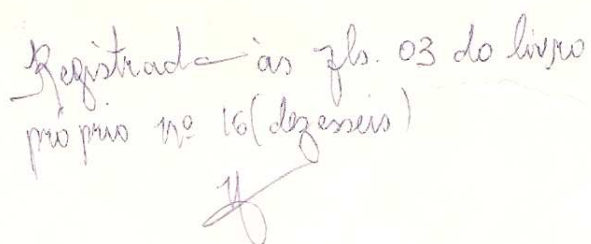 Registrada às fls. 03 do livro
próprio nº 16 (dezesseis)